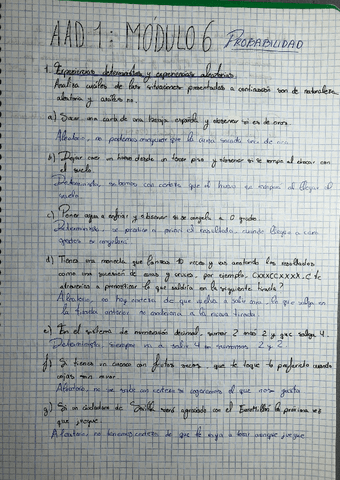 AAD 1: MÓDULO 6 PROBABILIDAD
1. Experiencias deterministas y experiencias aleatorias.
Analiza cuáles de las situaciones presentadas a continuación son de naturaleza
aleatoria y cuáles no.
a) Sacar una carta de una baraja española y observar si es de oros.
Aleatorio, no podemos asegurar que la carta sacada sea de oros.
b) Dejar caer un huevo desde un tercer piso y observar si se rompe al chocar con
el suelo.
Determinista, sabemos con certeza que el huevo se romperá al llegar al
suelo.
c) Poner agua a enfriar y observar si se congela a 0 grados.
Determinista, se predice a priori el resultado, cuando llegue a cero
grados se congelará.
d) Tienes una moneda que lanzas 10 veces y vas anotando los resultados
como una sucesión de caras y cruces, por ejemplo, CXXCCXXXX.C te
atreverías a pronosticar lo que saldría en la siguiente tirada?
Aleatorio, no hay certeza de que vuelva a salir cara, lo que salga en
la tirada anterior no condiciona a la nueva tirada.
e) En el sistema de numeración decimal, sumar 2 más 2 y que salga 4.
Determinista, siempre va a salir 4 si sumamos 2 y 2.
f) Si tienes un cuenco con frutos secos, que te toque tu preferido cuando
cojas sin mirar.
Aleatorio, no se sabe con certeza si cogeremos el que nos gusta.
g) Si un ciudadano de Sevilla será agraciado con el EuroMillón la próxima vez
que juegue.
Aleatorio, no tenemos certeza de que le vaya a tocar aunque juegue.